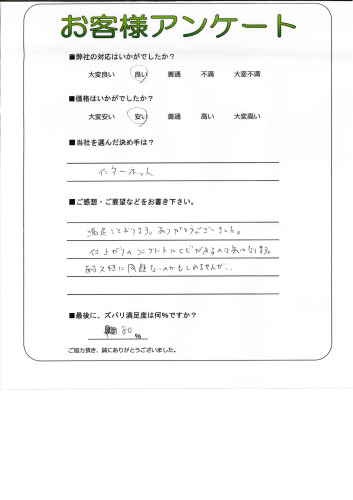 お客様アンケート
■弊社の対応はいかがでしたか？
大変良い 良い 普通 不満 大変不満
■価格はいかがでしたか？
大変安い 安い 普通 高い 大変高い
■当社を選んだ決め手は？
インターネット
■ご感想・ご要望などをお書き下さい。
満足しております。ありがとうございました。
仕上がりのコンクリートにヒビがあるのは気になります。
耐久性に問題ないのかもしれませんが…
■最後に、ズバリ満足度は何％ですか？
80 %
ご協力頂き、誠にありがとうございました。